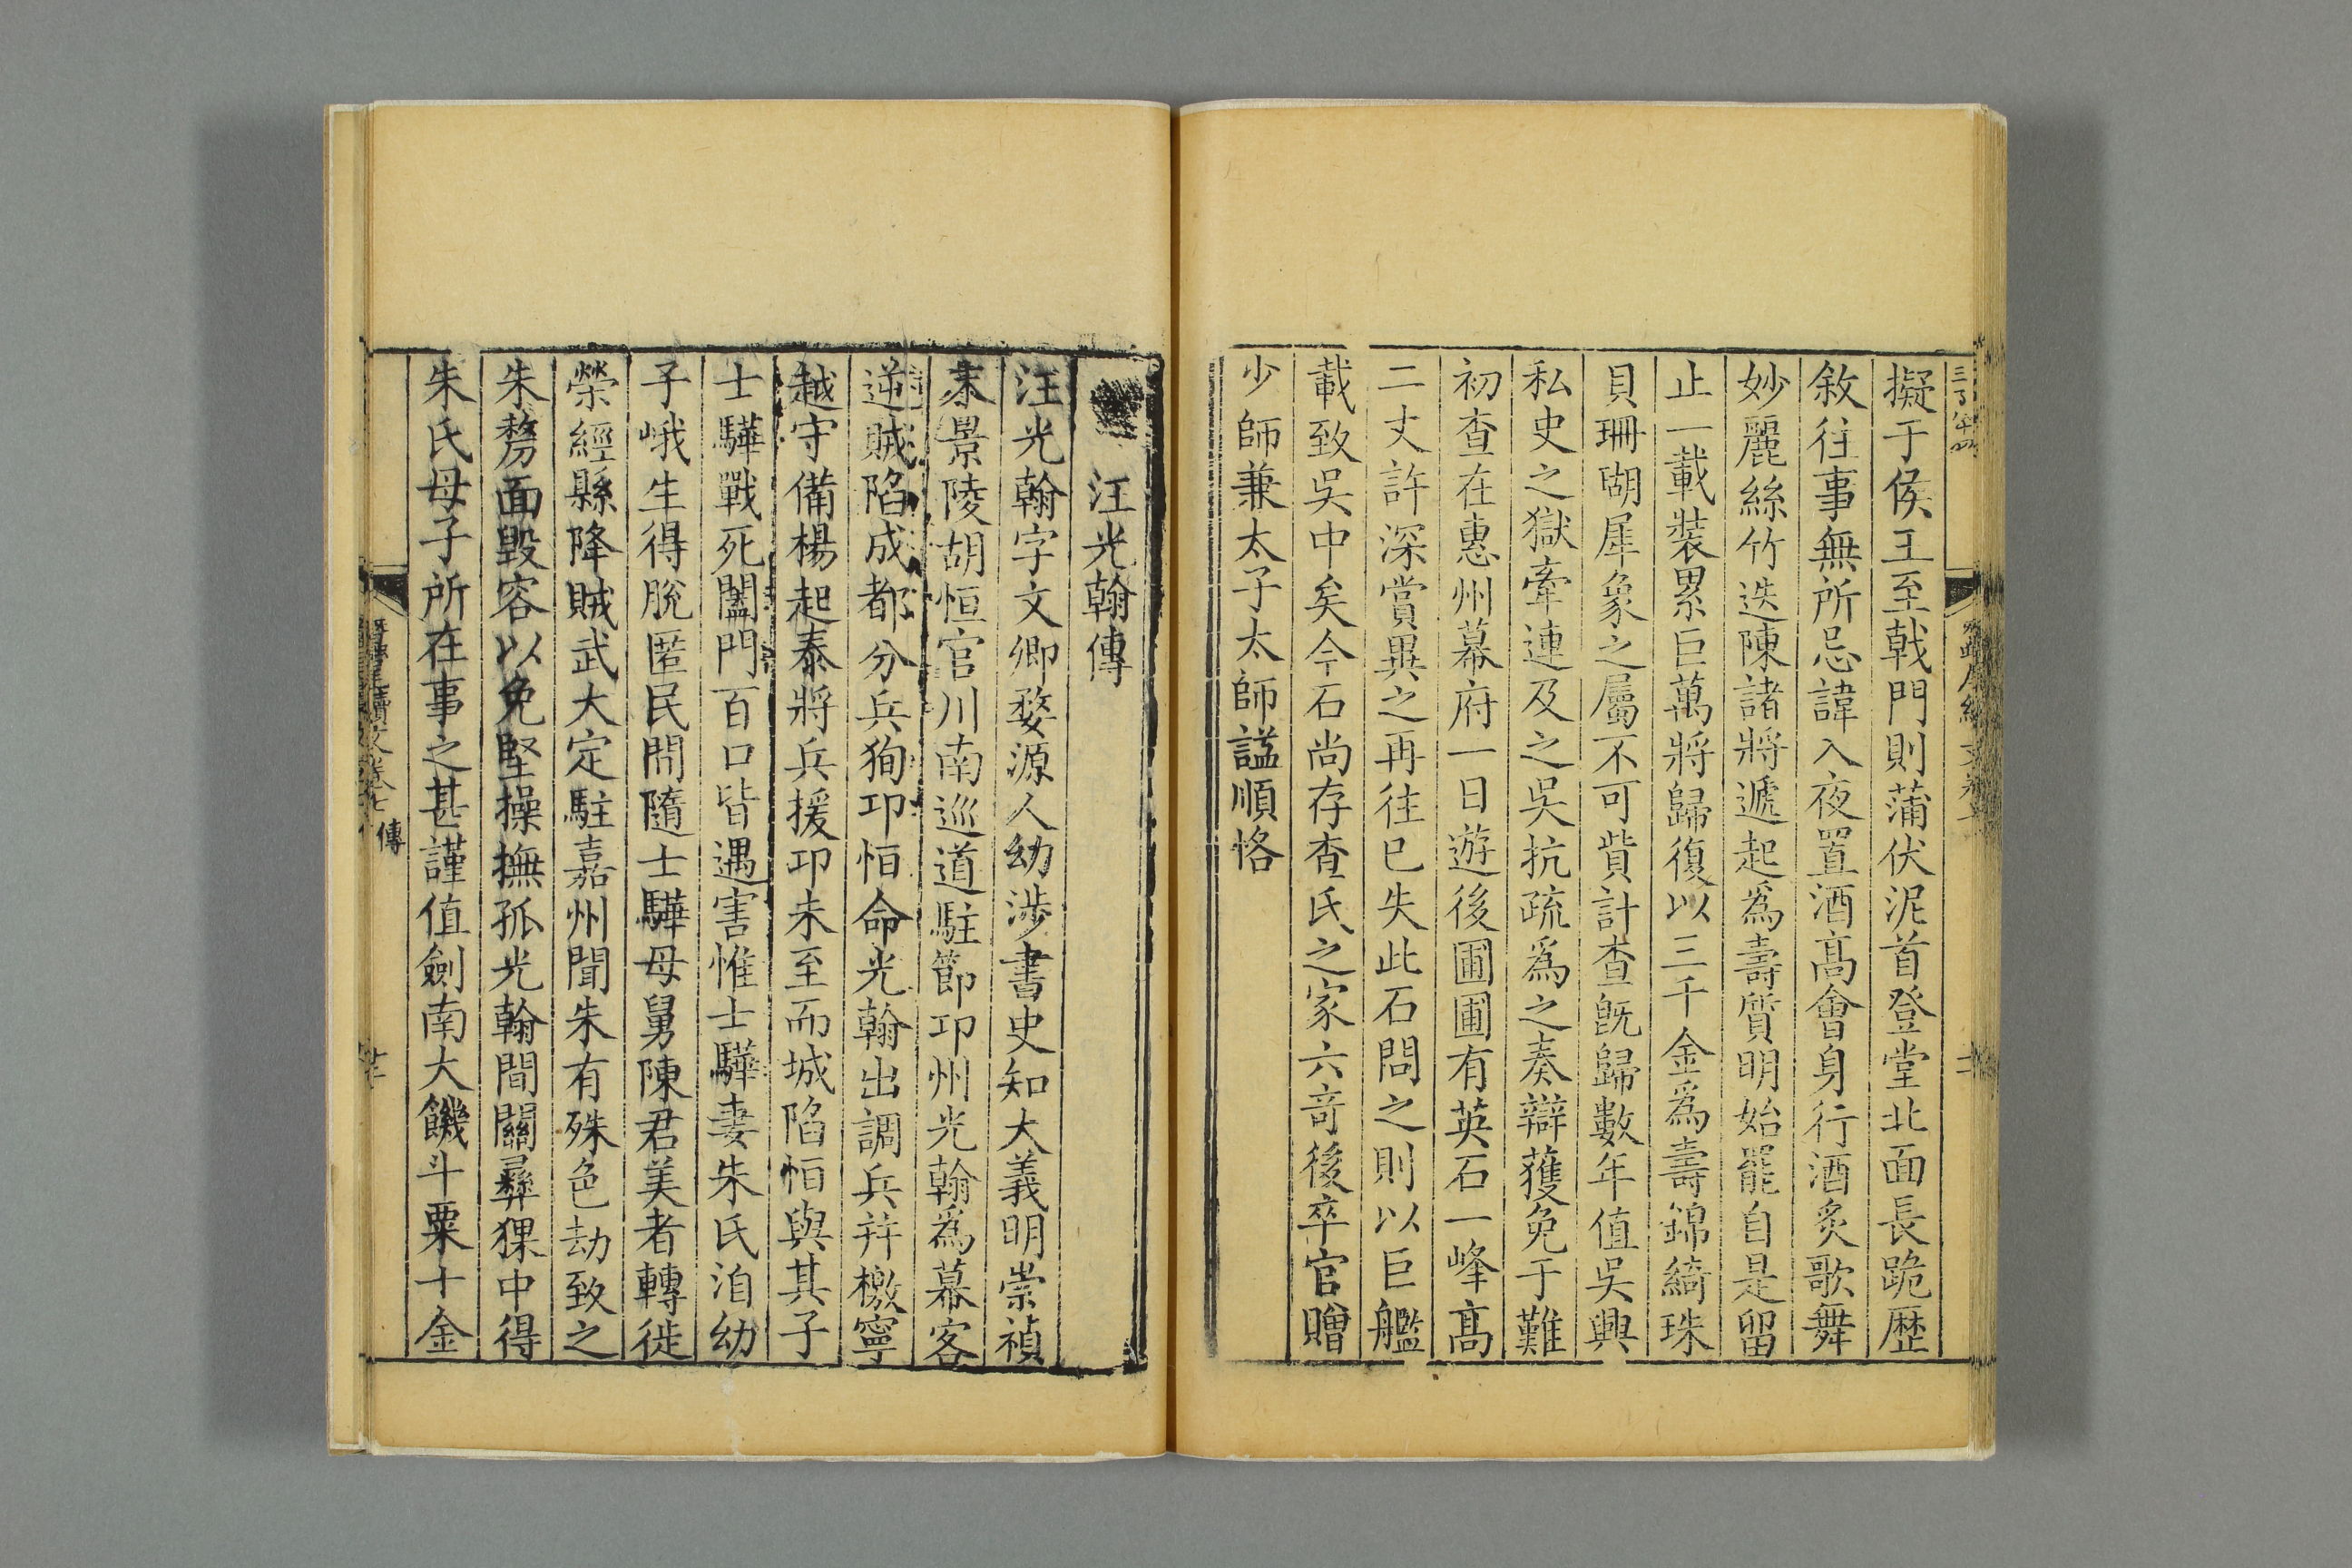 擬于侯王至戟門則蒲伏泥首登堂北面長跪歷
敘往事無所忌諱入夜置酒高會身行酒炙歌舞
妙麗絲竹迭陳諸將遞起爲壽質明始罷自是留
止一載裝累巨萬將歸復以三千金爲壽錦綺珠
貝珊瑚犀象之屬不可貲計查既歸數年值吳興
私史之獄牽連及之吳抗疏爲之奏辯獲免于難
初查在惠州幕府一日遊後圃圃有英石一峰高
二丈許深賞異之再往已失此石問之則以巨艦
載致吳中矣今石尚存查氏之家六竒後卒官贈
少師兼太子太師諡順恪
汪光翰傳
汪光翰字文卿婺源人幼涉書史知大義明崇禎
末景陵胡恒官川南巡道駐節卭州光翰爲幕客
逆賊陷成都分兵狥卭恒命光翰出調兵并檄寧
越守備楊起泰將兵援卭未至而城陷恒與其子
士驊戰死闔門百口皆遇害惟士驊妻朱氏洎幼
子峨生得脫匿民間隨士驊母舅陳君美者轉徙
榮經縣降賊武大定駐嘉州聞朱有殊色劫致之
朱剺面毀容以免堅操撫孤光翰間關彝猓中得
朱氏母子所在事之甚謹值劍南大饑斗粟十金
傳